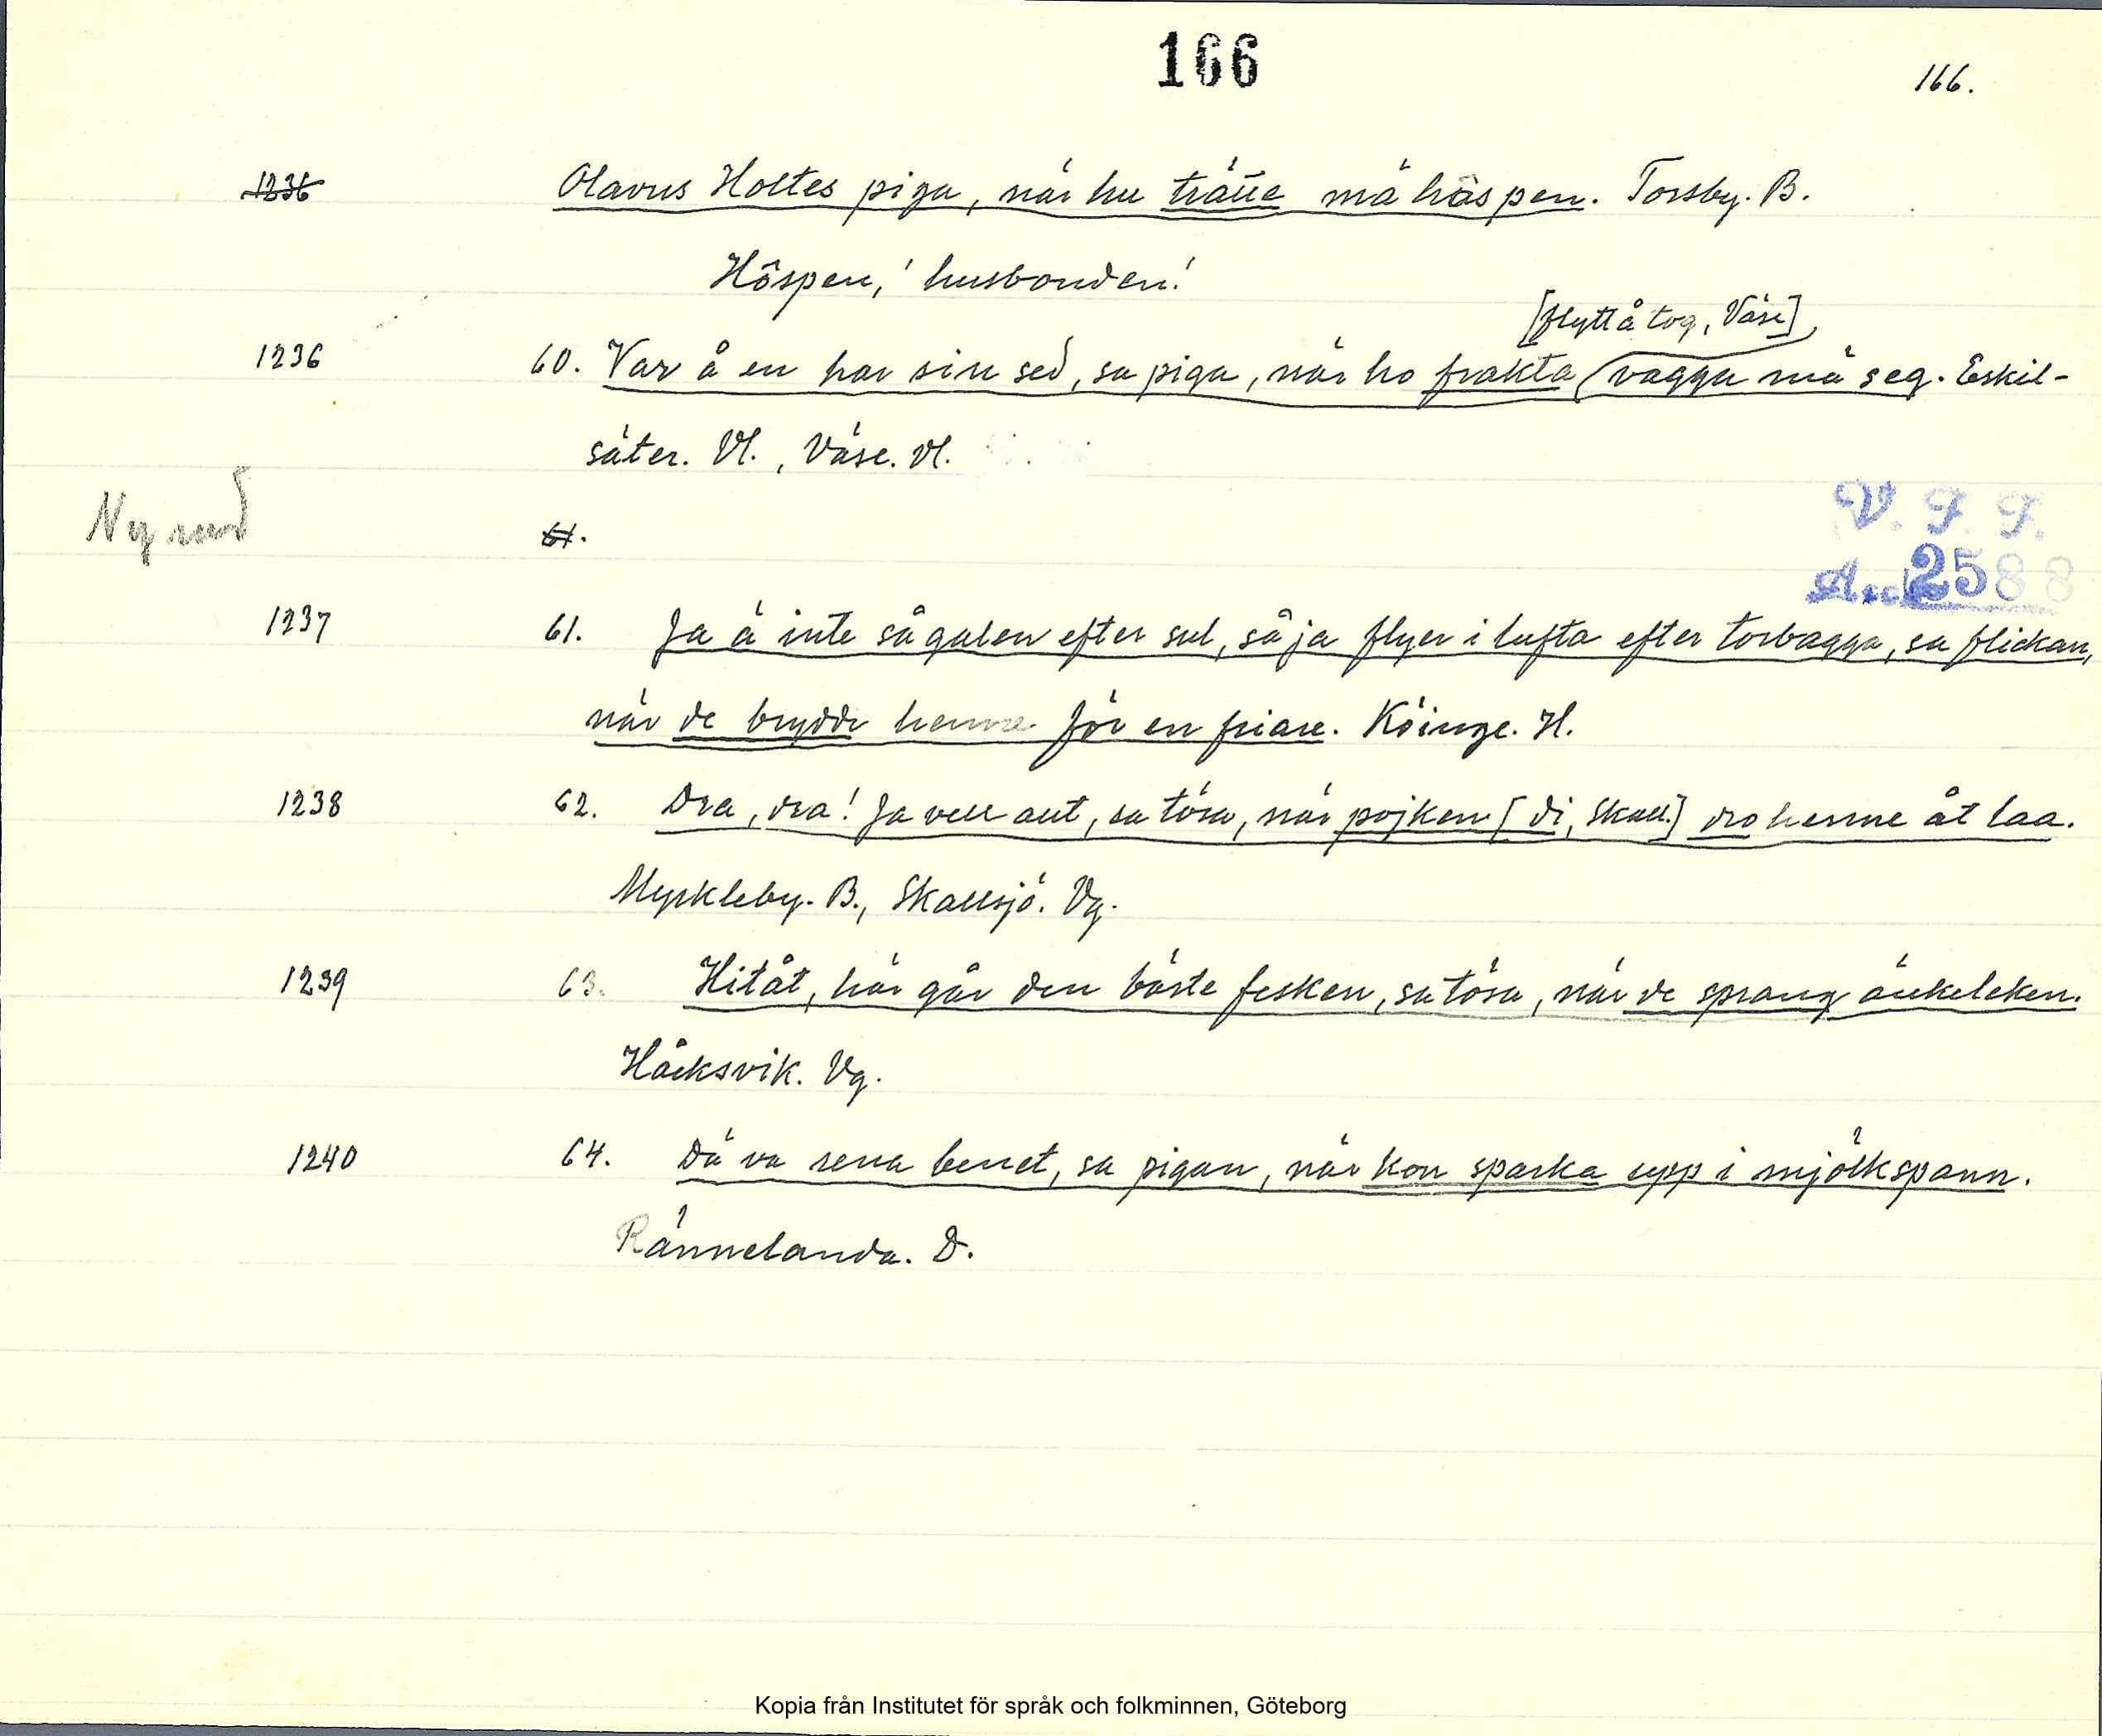 166
166.
1236 Olavus Holtes piga, när hu trätte mä häspen. Torsby. B.
Höspen, husbonden!
[flyttå tog, Väse]
1236 60. Var å en har sin sed, sa piga, när ho frakta vagga mä seg. Eskil-
säter. Vl., Väse. Vl.
Ny rad 61.
V. F. F.
Acc 2588
1237 61. Ja ä inte så galen efter sul, så ja flyer i lufta efter torbagga, sa flickan,
när de brydde henne för en friare. Köinge. H.
1238 62. Dra, dra! Ja vell ant, sa tösa, när pojken [di, Skall.] dro henne åt laa.
Myckleby. B., Skallsjö. Vg.
1239 63. Hitåt, här går den bäste fesken, sa tösa, när de sprang änkeleken.
Håcksvik. Vg.
1240 64. Dä va rena benet, sa pigan, när kon sparka upp i mjölkspann.
Rännelanda. D.
Kopia från Institutet för språk och folkminnen, Göteborg